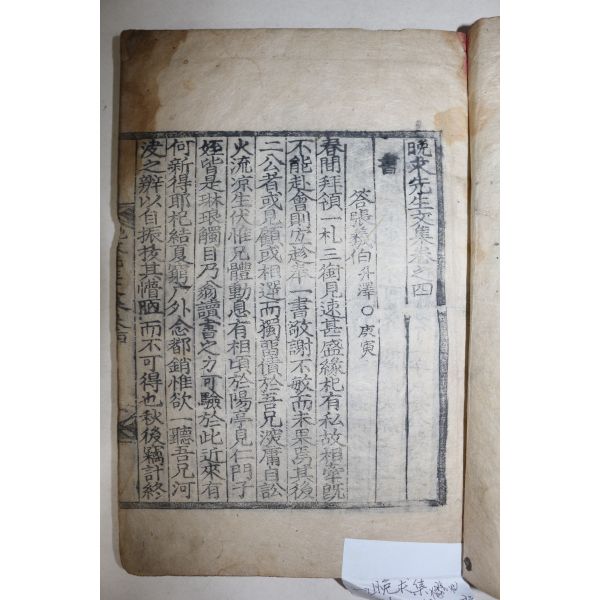 晩求先生文集卷之四
書
答張穉伯升澤○庚寅
春間拜領一札三銜見速甚盛緣杞有私故相牽旣
不能赴會則宜趁章一書敬謝不敏而未果焉其後
二公者或見顧或相選而獨習債於吾兄深庸自訟
火流凉生伏惟兄體動息有相頃於陽亭見仁門子
姪皆是琳琅觸目乃翁讀書之方可驗於此近來有
何新得耶杞結夏窮外念都銷惟欲一聽吾兄河
波之辨以自振拔其懵陋而不可得也秋後竊計終
晩求集